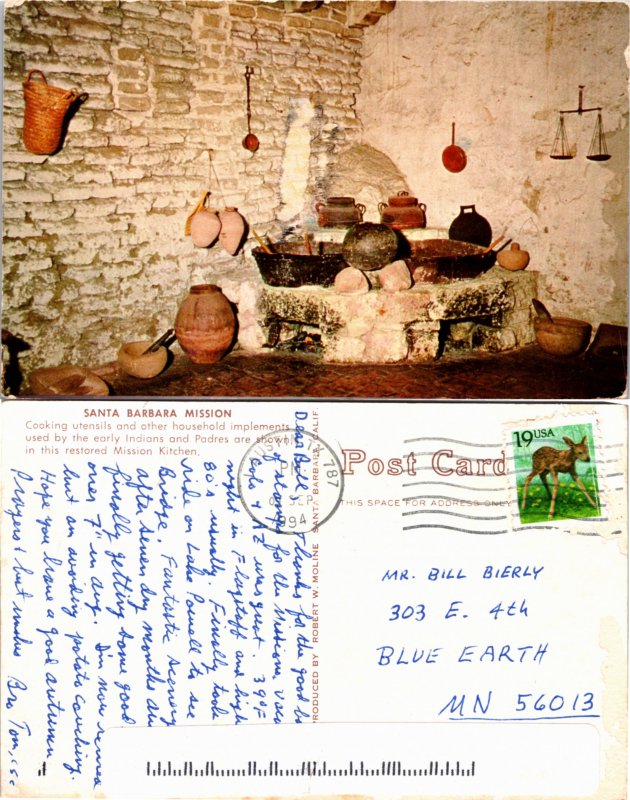 SANTA BARBARA MISSION
Cooking utensils and other household implements
used by the early Indians and Padres are shown
in this restored Mission Kitchen.
Dear Bill : Thanks for the good
for the Missions,
Colo + AZ was great. 39°F
night in Flagstaff and high
80's usually. Finally took
ride on Lake Powell to see
Bridge. Fantastic scenery
after seven dry months
finally getting some good
ones 7" in Aug. I'm now
but am avoiding potato couching.
Hope you have a good autumn
Prayers & best wishes Bro Tom, csc
PRODUCED BY ROBERT W. MOLINE SANTA BARBARA, CALIF
AUSTIN TX 787
PM
SEP
1994
Post Card
THIS SPACE FOR ADDRESS ONLY
19 USA
MR. BILL BIERLY
303 E. 4th
BLUE EARTH
MN 56013